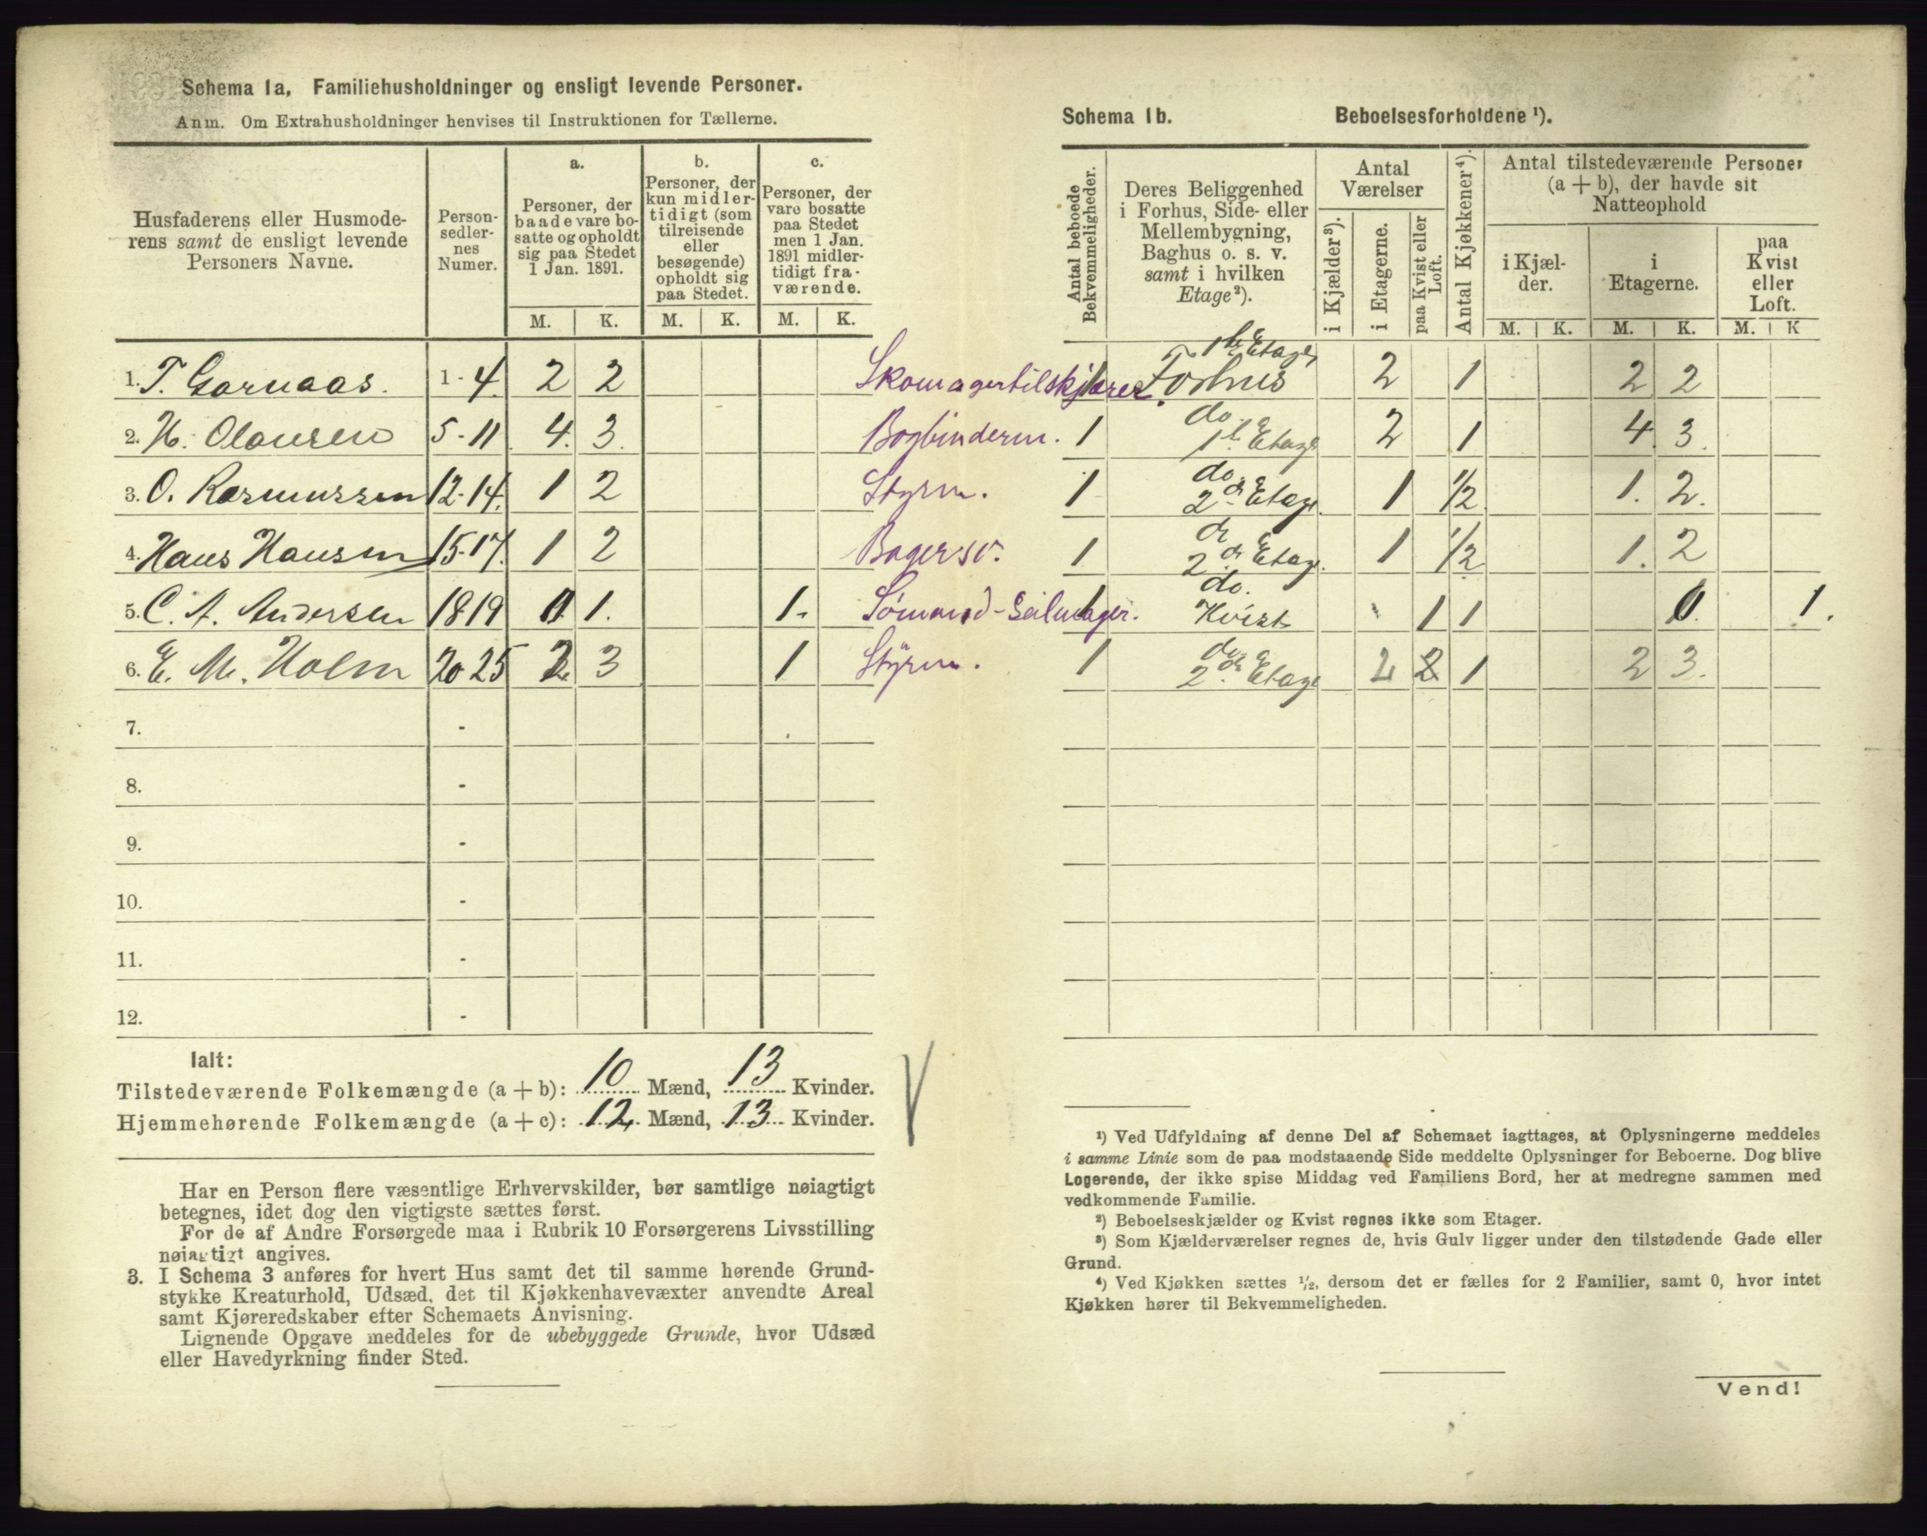 Schema 1a. Familiehusholdninger og ensligt levende Personer.
Anm. Om Extrahusholdninger henvises til Instruktionen for Tællerne.
Husfaderens eller Husmoderens samt de ensligt levende Personers Navne.
Person-sedler-nes Numer.
a. Personer, der baade vare bosatte og opholdt sig paa Stedet 1 Jan. 1891.
b. Personer, der kun midlertidigt (som tilreisende eller besøgende) opholdt sig paa Stedet.
c. Personer, der vare bosatte paa Stedet men 1 Jan. 1891 midlertidigt fraværende.
M. K. M. K. M. K.
1. T. Garnaas. 1-4. 2 2 Skomagertilskjærer.
2. H. Olausen 5-11 4. 3. Bogbinderm.
3. O. Rasmussen 12-14. 1 2 Styrm.
4. Hans Hansen 15-17. 1 2 Bagersv.
5. C. A. Andersen 18 19 1. 1. Sømand-Seilmager.
6. E. M. Holm 20 25 2 3 1 Styrm.
7. -
8. -
9. -
10. -
11. -
12. -
Ialt:
Tilstedeværende Folkemængde (a + b): 10 Mænd, 13 Kvinder.
Hjemmehørende Folkemængde (a + c): 12 Mænd, 13 Kvinder.
Har en Person flere væsentlige Erhvervskilder, bør samtlige nøiagtigt
betegnes, idet dog den vigtigste sættes først.
For de af Andre Forsørgede maa i Rubrik 10 Forsørgerens Livsstilling
nøiagtigt angives.
3. I Schema 3 anføres for hvert Hus samt det til samme hørende Grund-
stykke Kreaturhold, Udsæd, det til Kjøkkenhavevæxter anvendte Areal
samt Kjøreredskaber efter Schemaets Anvisning.
Lignende Opgave meddeles for de ubebyggede Grunde, hvor Udsæd
eller Havedyrkning finder Sted.
Schema 1b. Beboelsesforholdene ¹).
Antal beboede Bekvemmeligheder.
Deres Beliggenhed i Forhus, Side- eller Mellembygning, Baghus o. s. v. samt i hvilken Etage²).
Antal Værelser
i Kjælder³).
i Etagerne.
paa Kvist eller Loft.
Antal Kjøkkener⁴).
Antal tilstedeværende Personer (a + b), der havde sit Natteophold
i Kjælder.
i Etagerne.
paa Kvist eller Loft.
M. K. M. K. M. K
1 Forhus 1ste Etage 2 1 2 2
1 do. 1ste Etage 2 1 4. 3.
1 do. 2den Etage. 1 1/2 1. 2.
1 do 2den Etage. 1 1/2 1. 2
1 do. Kvist 1 1 1.
1 do. 2den Etage 2 1 2 3.
¹) Ved Udfyldning af denne Del af Schemaet iagttages, at Oplysningerne meddeles
i samme Linie som de paa modstaaende Side meddelte Oplysninger for Beboerne. Dog blive
Logerende, der ikke spise Middag ved Familiens Bord, her at medregne sammen med
vedkommende Familie.
²) Beboelseskjælder og Kvist regnes ikke som Etager.
³) Som Kjælderværelser regnes de, hvis Gulv ligger under den tilstødende Gade eller
Grund.
⁴) Ved Kjøkken sættes ½, dersom det er fælles for 2 Familier, samt 0, hvor intet
Kjøkken hører til Bekvemmeligheden.
Vend!